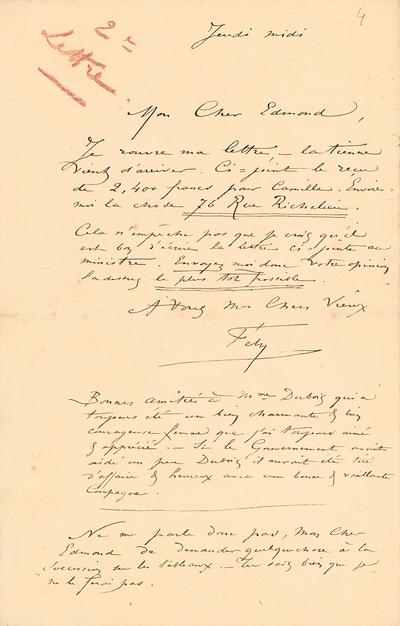 4
2e
Lettre
Jeudi midi
Mon Cher Edmond,
Je rouvre ma lettre, – la tienne
vient d'arriver. Ci-joint le reçu
de 2,400 francs pour Camille. Envoie-
moi la chose 76 Rue Richelieu.
Cela n'empêche pas que je crois qu'il
est bon d'écrire la lettre ci-jointe au
ministre. Envoyez moi donc votre opinion
là dessus le plus tôt possible.
A Vous Mes Chers Vieux
Fély
Bonnes amitiés à Mme Dubois qui a
toujours été une bien charmante & bien
courageuse femme que j'ai toujours aimé
& apprécié. – Si le Gouvernement avait
aidé un peu Dubois il aurait été tiré
d'affaire & heureux avec une bonne & vaillante
Compagne.
Ne me parle donc pas, Mon Cher
Edmond de demander quelque chose à la
Succession sur les tableaux. – Tu sais bien que je
ne le ferai pas.